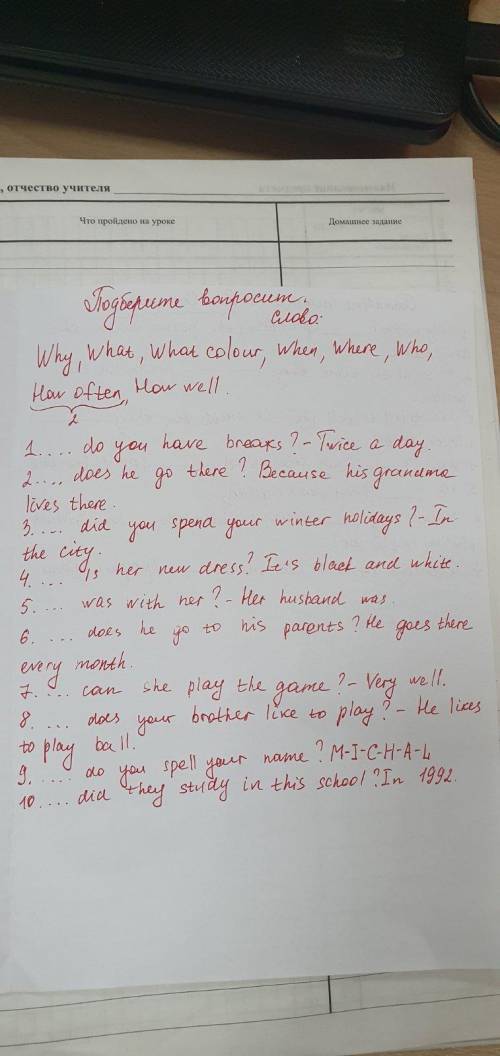 , отчество учителя
Что пройдено на уроке
Домашнее задание
Подберите вопросит.
слово:
Why, What, What colour, When, Where, Who,
How often, How well.
2
1.... do you have breaks? - Twice a day.
2.... does he go there? Because his grandma
lives there.
3. ... did you spend your winter holidays? - In
the city.
4. ... is her new dress? It's black and white.
5. ... was with her? - Her husband was.
6. ... does he go to his parents? He goes there
every month.
7. ... can she play the game? - Very well.
8. ... does your brother like to play? - He likes
to play ball.
9. .... do you spell your name? M-I-C-H-A-L
10.... did they study in this school? In 1992.